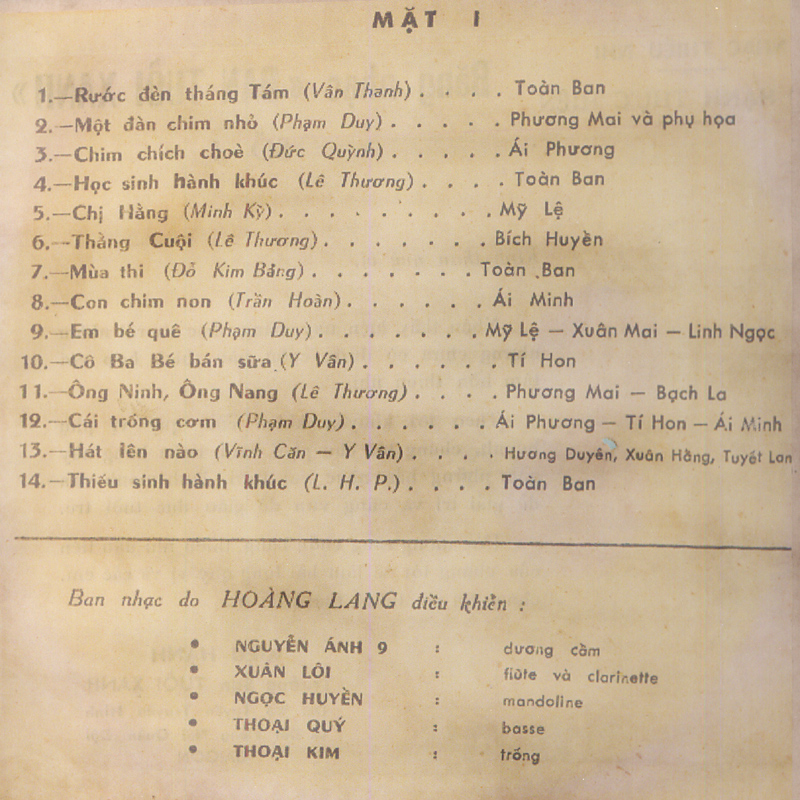 MẶT I
1.—Rước đèn tháng Tám (Vân Thanh) . . . . Toàn Ban
2.—Một đàn chim nhỏ (Phạm Duy) . . . . . Phương Mai và phụ họa
3.—Chim chích choè (Đức Quỳnh) . . . . . Ái Phương
4.—Học sinh hành khúc (Lê Thương) . . . . Toàn Ban
5.—Chị Hằng (Minh Kỳ) . . . . . . . . . Mỹ Lệ
6.—Thằng Cuội (Lê Thương) . . . . . . . Bích Huyền
7.—Mùa thi (Đỗ Kim Bảng) . . . . . . . Toàn Ban
8.—Con chim non (Trần Hoàn) . . . . . . Ái Minh
9.—Em bé quê (Phạm Duy) . . . . . . . Mỹ Lệ — Xuân Mai — Linh Ngọc
10.—Cô Ba Bé bán sữa (Y Vân) . . . . . . Tí Hon
11.—Ông Ninh, Ông Nang (Lê Thương) . . . . Phương Mai — Bạch La
12.—Cái trống cơm (Phạm Duy) . . . . . . Ái Phương — Tí Hon — Ái Minh
13.—Hát lên nào (Vĩnh Căn — Y Vân) . . . . Hương Duyên, Xuân Hằng, Tuyết Lan
14.—Thiếu sinh hành khúc (L. H. P.) . . . . Toàn Ban
Ban nhạc do HOÀNG LANG điều khiển :
• NGUYỄN ÁNH 9 : dương cầm
• XUÂN LÔI : flûte và clarinette
• NGỌC HUYỀN : mandoline
• THOẠI QUÝ : basse
• THOẠI KIM : trống